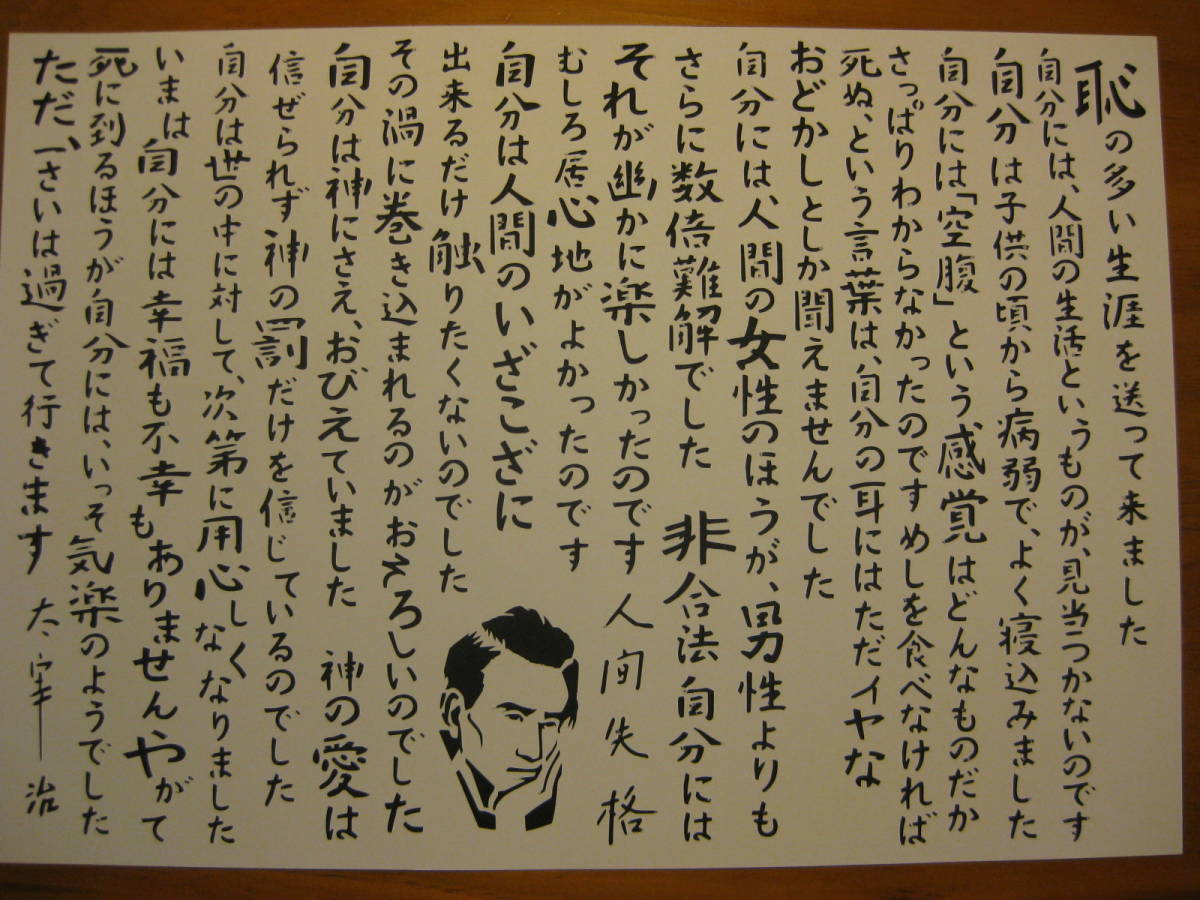 恥の多い生涯を送って来ました
自分には、人間の生活というものが、見当つかないのです
自分は子供の頃から病弱で、よく寝込みました
自分には「空腹」という感覚はどんなものだか
さっぱりわからなかったのです めしを食べなければ
死ぬ、という言葉は、自分の耳にはただイヤな
おどかしとしか聞えませんでした
自分には、人間の女性のほうが、男性よりも
さらに数倍難解でした 非合法 自分には
それが幽かに楽しかったのです 人間失格
むしろ居心地がよかったのです
自分は人間のいざこざに
出来るだけ触りたくないのでした
その渦に巻き込まれるのがおそろしいのでした
自分は神にさえ、おびえていました 神の愛は
信ぜられず神の罰だけを信じているのでした
自分は世の中に対して、次第に用心しなくなりました
いまは自分には幸福も不幸もありません やがて
死に到るほうが自分には、いっそ気楽のようでした
ただ、一さいは過ぎて行きます 太宰治